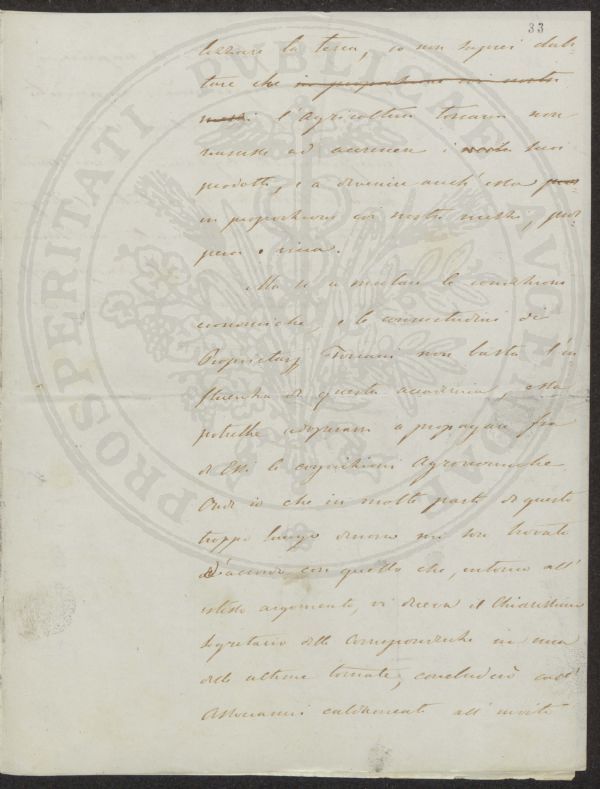 33
la terra, io non saprei dubi-
tare che in proporzione dei nostri
mezzi l'Agricoltura toscana non
riuscisse ad accrescere i suoi
prodotti, e a divenire anch'essa
in proporzione coi nostri mezzi, pros-
pera e ricca.
Ma se a mutare le condizioni
economiche, e le consuetudini dei
Proprietarj Toscani non basta l'in
fluenza di questa accademia, essa
potrebbe adoprarsi a propagare fra
di Essi le cognizioni Agronomiche
Ond' io che in molte parti di questo
troppo lungo discorso mi sono trovato
d'accordo con quello che, intorno all'
istesso argomento, vi diceva il Chiarissimo
Segretario delle Corrispondenze in una
delle ultime tornate, concluderò coll'
Associarmi caldamente all' invito
PROSPERITATI PUBLICAE AUGENDAE